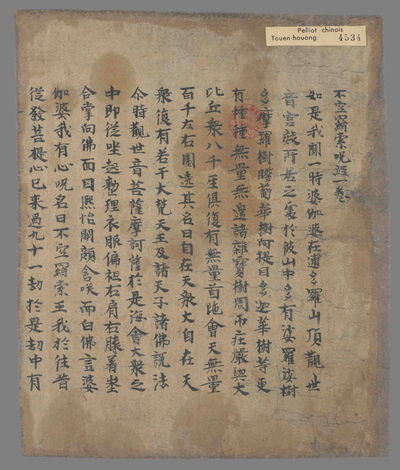 Pelliot chinois
Touen-houang 4534
不空羂索呪經一卷
如是我聞一時婆伽婆在逋多羅山頂觀世
音宮殿所居之處於彼山中多有娑羅波樹
多摩羅樹瞻蔔華樹阿提目多迦華樹等更
有種種無量無邊諸雜寶樹周帀莊嚴與大
比丘衆八千人俱復有無量首陁會天無量
百千左右圍遶其名曰自在天衆大自在天
衆復有若干大梵天王及諸天子請佛說法
尒時觀世音菩薩摩訶薩於是海會大衆之
中即從坐起整理衣服偏袒右肩右膝着地
合掌向佛面目熙怡開顏含咲而白佛言婆
伽婆我有心呪名曰不空羂索王我於往昔
從發菩提心已來過九十一劫於是劫中有